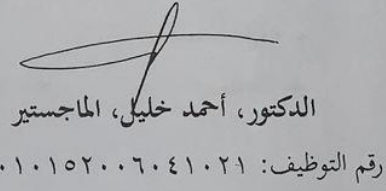 الدكتور، أحمد خليل، الماجستير
رقم التوظيف: ٠١٠١٥٢٠٠٦٠٤١٠٢١